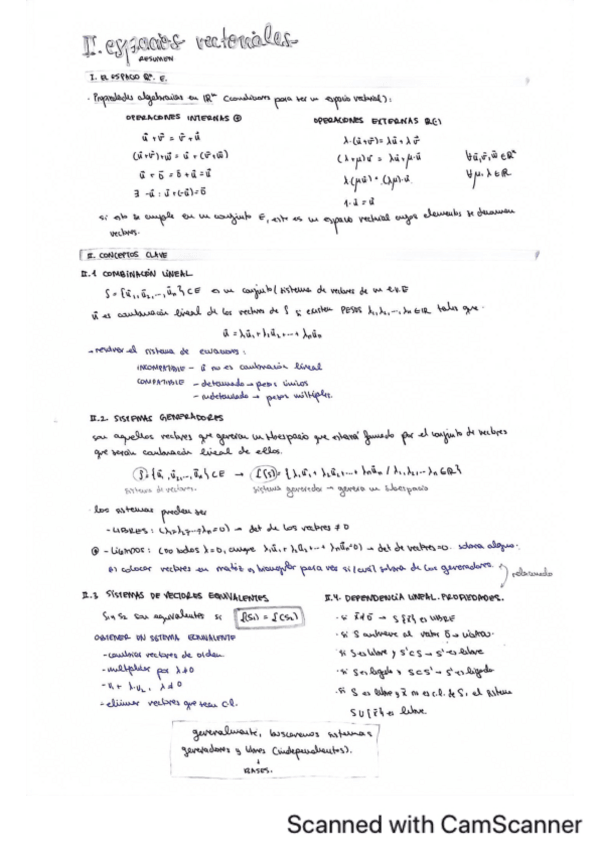 II. espacios vectoriales
RESUMEN
I. EL ESPACIO Rⁿ. E.
· Propiedades algebraicas en ℝⁿ (condiciones para ser un espacio vectorial):
OPERACIONES INTERNAS ⊕
ū+v̄ = v̄+ū
(ū+v̄)+w̄ = ū+(v̄+w̄)
ū+ō = ō+ū = ū
∃ -ū : ū+(-ū)=ō
OPERACIONES EXTERNAS
λ·(ū+v̄)= λū+λv̄
(λ+μ)ū = λū+μ·ū
λ(μū) = (λμ)·ū
1·ū = ū
∀ū,v̄,w̄ ∈ ℝⁿ
∀μ,λ ∈ ℝ
si esto se cumple en un conjunto E, este es un espacio vectorial cuyos elementos se denominan
vectores.
II. CONCEPTOS CLAVE
II.1 COMBINACIÓN LINEAL
S = {ū₁, ū₂, ..., ūₙ} ⊂ E es un conjunto/sistema de vectores de un
ū es combinación lineal de los vectores de S si existen PESOS λ₁, λ₂, ..., λₙ ∈ ℝ tales que
ū = λ₁ū₁+λ₂ū₂+...+λₙūₙ
→ resolver el sistema de ecuaciones:
INCOMPATIBLE – ū no es combinación lineal
COMPATIBLE – determinado → pesos únicos
– indeterminado → pesos múltiples
II.2 SISTEMAS GENERADORES
son aquellos vectores que generan un subespacio que estará formado por el conjunto de vectores
que serán combinación lineal de ellos.
S={ū₁, ū₂, ..., ūₙ} ⊂ E → L(S) = {λ₁ū₁+λ₂ū₂+...+λₙūₙ / λ₁,λ₂,...λₙ ∈ ℝ}
sistema de vectores.
sistema generador → genera un subespacio
· los sistemas pueden ser
- LIBRES: (λ₁=λ₂=...λₙ=0) → det de los vectores ≠ 0
- LIGADOS: (no todos λ=0, aunque λ₁ū₁+λ₂ū₂+...+λₙūₙ=0) → det de vectores=0. sobra alguno.
colocar vectores en matriz y triangular para ver si/cuál sobra de los generadores.
relacionado
II.3 SISTEMAS DE VECTORES EQUIVALENTES
S₁ y S₂ son equivalentes si L(S₁) = L(S₂)
OBTENER UN SISTEMA EQUIVALENTE
- cambiar vectores de orden
- multiplicar por λ≠0
- u₁ + λ·u₂, λ≠0
- eliminar vectores que sean C.L.
II.4. DEPENDENCIA LINEAL. PROPIEDADES.
· si x̄≠ō → S{x̄} es LIBRE
· si S contiene al vector ō → LIGADO.
· si S es libre y S'⊂S → S' es libre
· si S es ligado y S⊂S' → S' es ligado
· si S es libre y x̄ no es c.l. de S, el sistema
S∪{x̄} es libre.
generalmente, buscaremos sistemas
generadores y libres (independientes).
↓
BASES.
Scanned with CamScanner